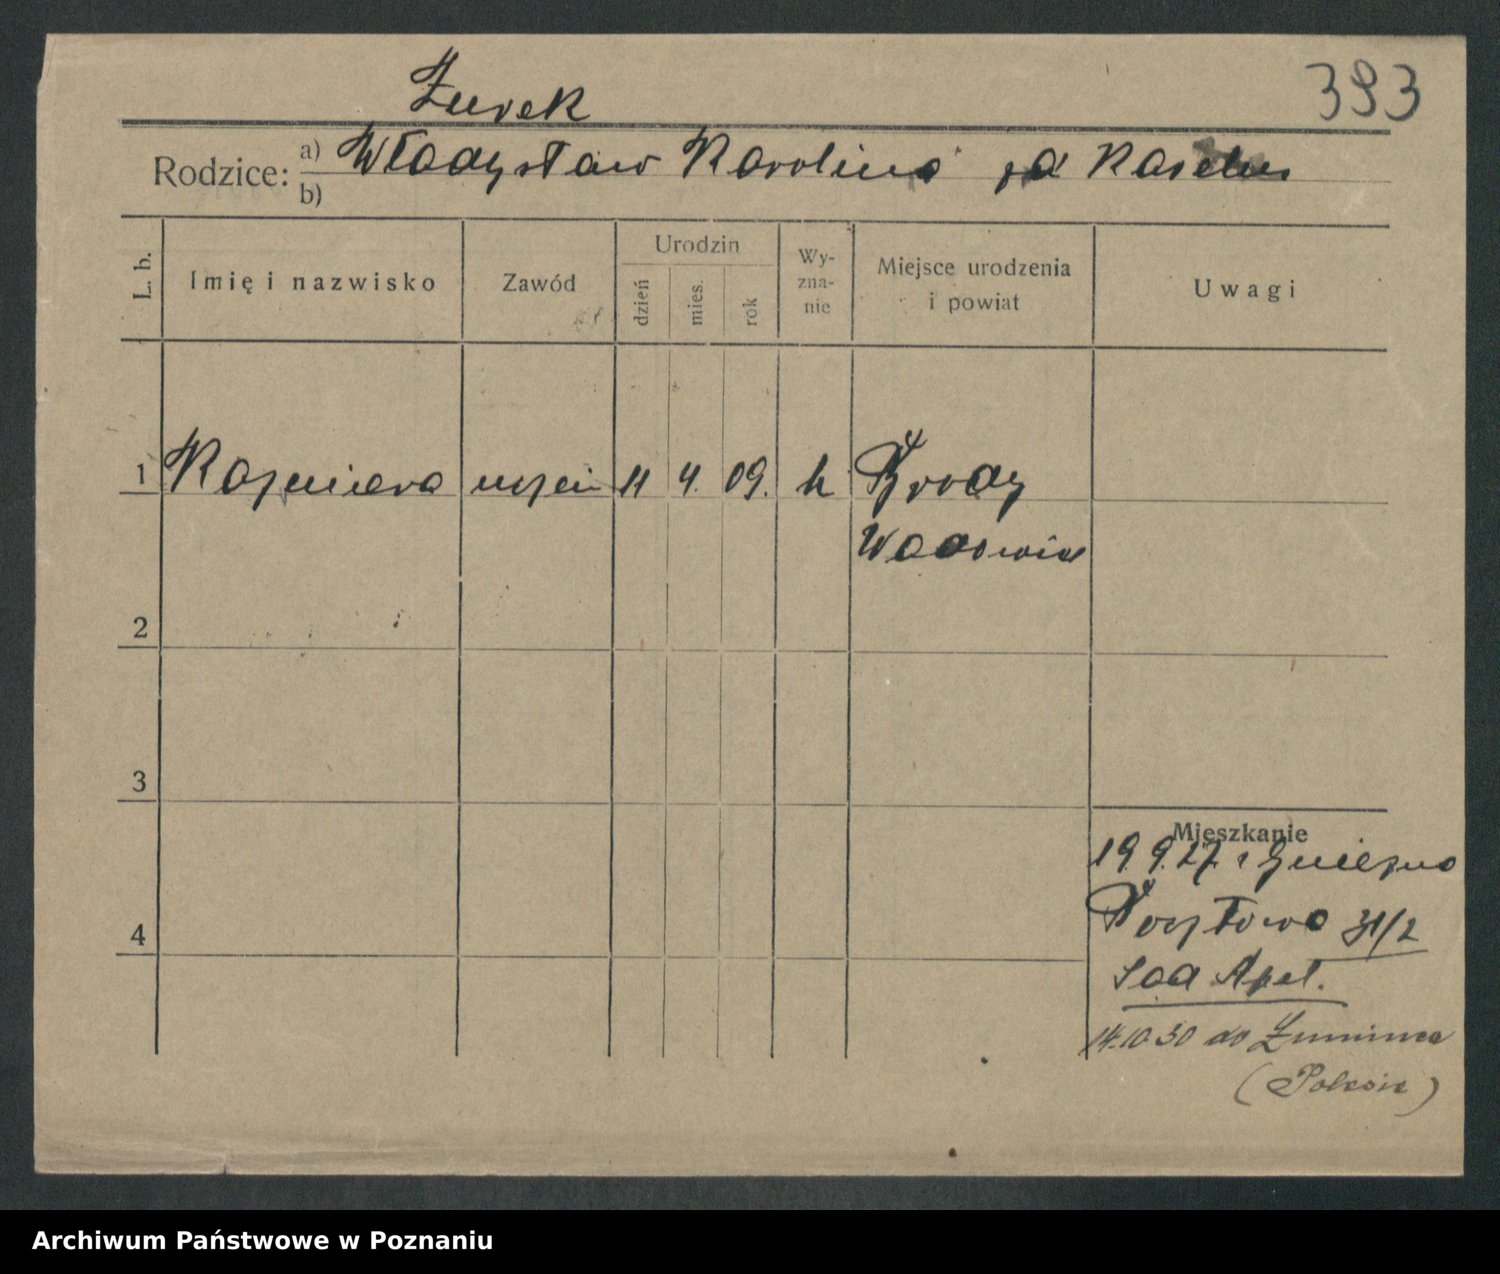 Żurek
393
Rodzice: a) Władysław Karolina zd
b)
L. b.
Imię i nazwisko
Zawód
Urodzin
dzień
mies.
rok
Wy-
zna-
nie
Miejsce urodzenia
i powiat
Uwagi
1 Kazimiera 11 4. 09. k Brody
Wadowice
2
3
4
Mieszkanie
19.9.27. z Gniezno
Pocztowa 31/2
Sąd Apel.
14.10.30 do
(Polesie)
Archiwum Państwowe w Poznaniu